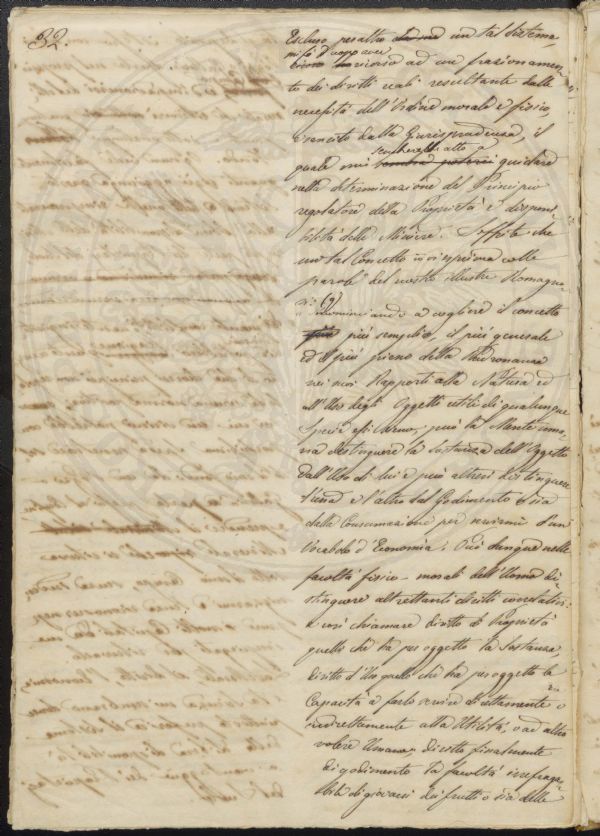 32.
Escluso peraltro un tal sistema,
mi fò D'uopo aver
ricorso ad un frazionamen-
to dei diritti reali resultante dalle
necessità dell'Ordine morale e fisico,
e sancito dalla Giurisprudenza, il
sembrerebbe atto a
quale mi sembra potersi guidare
nella determinazione del Principio
regolatore della Proprietà e disponi-
bilità delle Miniere. Offrite che
un tal Concetto colle
parole del nostro illustre Romagno-
si: (9)
"Incominciando a cogliere il concetto
più semplice, il più generale
ed il più pieno della Padronanza
nei suoi Rapporti alla Natura ed
all'Uso degli Oggetti utili di qualunque
Specie essi siano, può la Mente uma-
na distinguere la Sostanza dell'Oggetto
dall'Uso di lui e può altresì distinguere
l'una e l'altro dal Godimento o sia
dalla Consumazione per servirmi d'un
Vocabolo d'Economia: Può dunque nelle
facoltà fisico-morali dell'Uomo di-
stinguere altrettanti diritti correlativi:
e così chiamare diritto di Proprietà
quello che ha per oggetto la Sostanza;
diritto d'Uso quello che ha per oggetto la
Capacità a farlo servire direttamente o
indirettamente alla Utilità, o ad altro
volere Umano; Diritto finalmente
di godimento la facoltà irrefraga-
bile di giovarsi dei frutti o sia delle